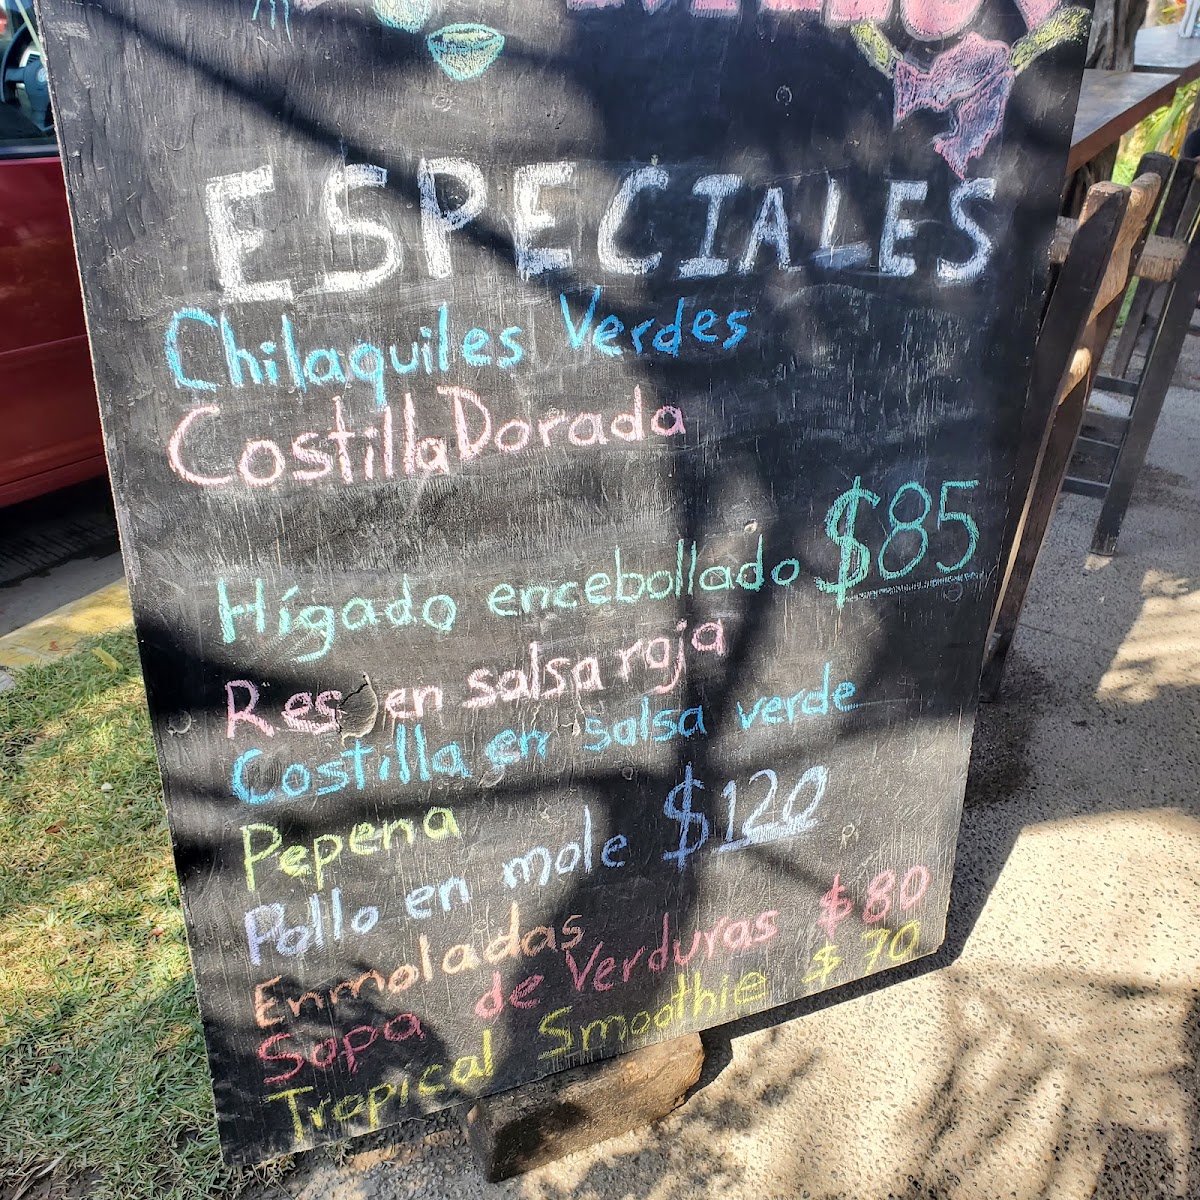 ESPECIALES
Chilaquiles Verdes
Costilla Dorada
Hígado encebollado $85
Res en salsa roja
Costilla en salsa verde
Pepena
Pollo en mole $120
Enmoladas
Sopa de Verduras $80
Tropical Smoothie $70